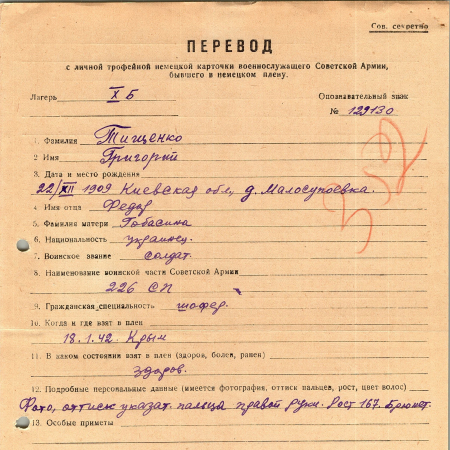 Сов. секретно
ПЕРЕВОД
с личной трофейной немецкой карточки военнослужащего Советской Армии,
бывшего в немецком плену.
Лагерь X Б Опознавательный знак
№ 129130
1. Фамилия Тищенко
2 Имя Григорий
3. Дата и место рождения
22/XII 1909 Киевская обл, д. Малосупоевка.
4. Имя отца Федор
5. Фамилия матери Гобасина
6. Национальность украинец.
7. Воинское звание солдат.
8. Наименование воинской части Советской Армии
226 СП
9. Гражданская специальность шофер.
10. Когда и где взят в плен
18.1.42. Крым
11. В каком состоянии взят в плен (здоров, болен, ранен)
здоров.
12. Подробные персональные данные (имеется фотография, оттиск пальцев, рост, цвет волос)
Фото, оттиск указат. пальца правой руки. Рост 167. Брюнет.
13. Особые приметы